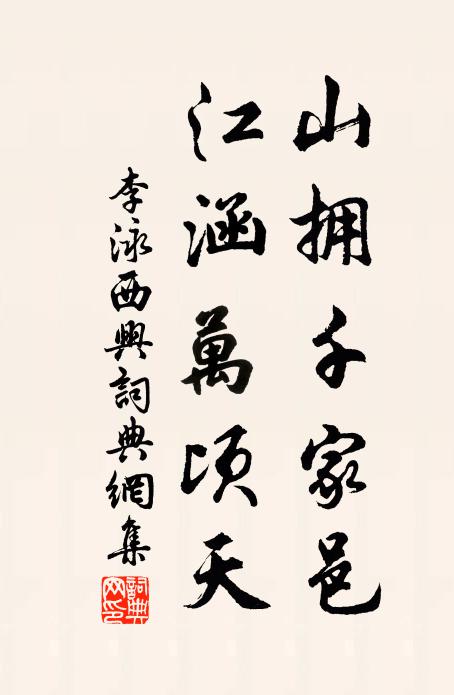 山拥千家邑
江涵萬頃天
李泳西興詞典網集
詞典網印